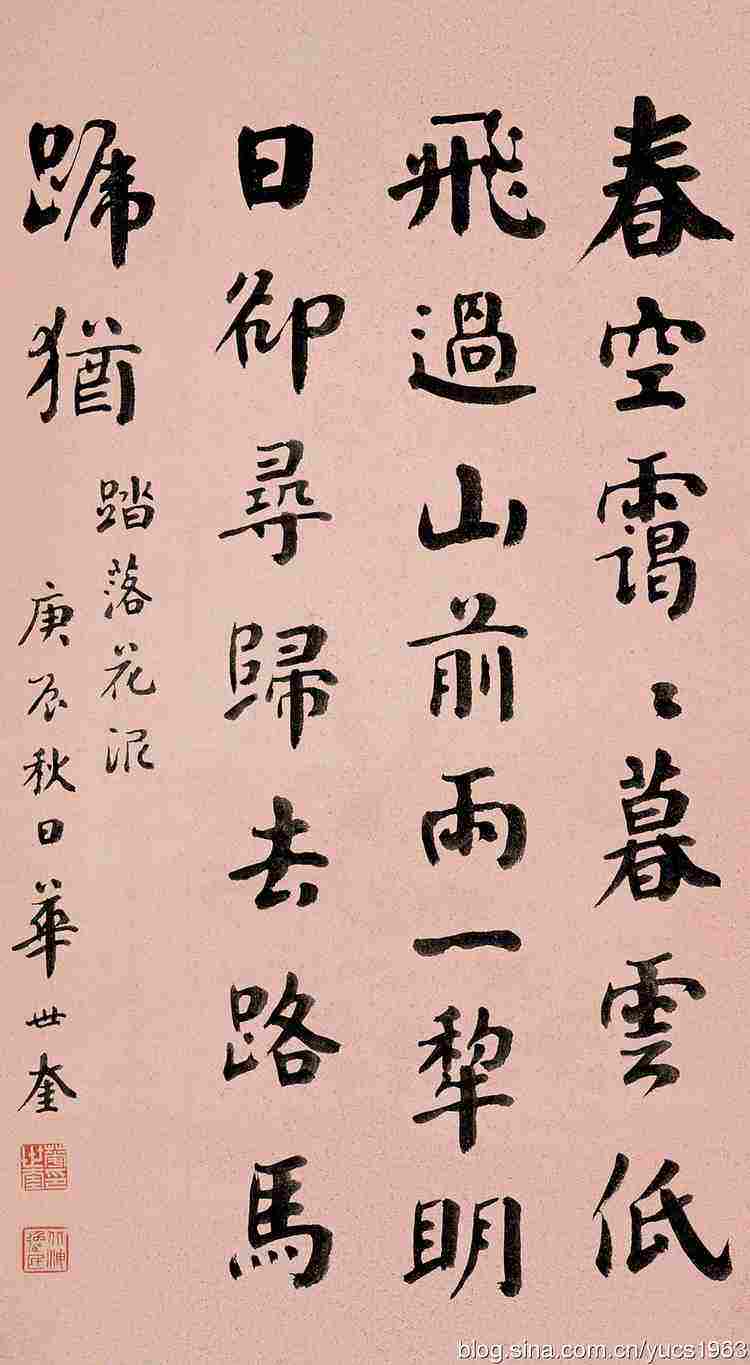 春空靄〻暮雲低
飛過山前雨一犂明
日卻尋歸去路馬
蹏猶
踏落花泥
庚辰秋日華世奎
blog.sina.com.cn/yucs1963